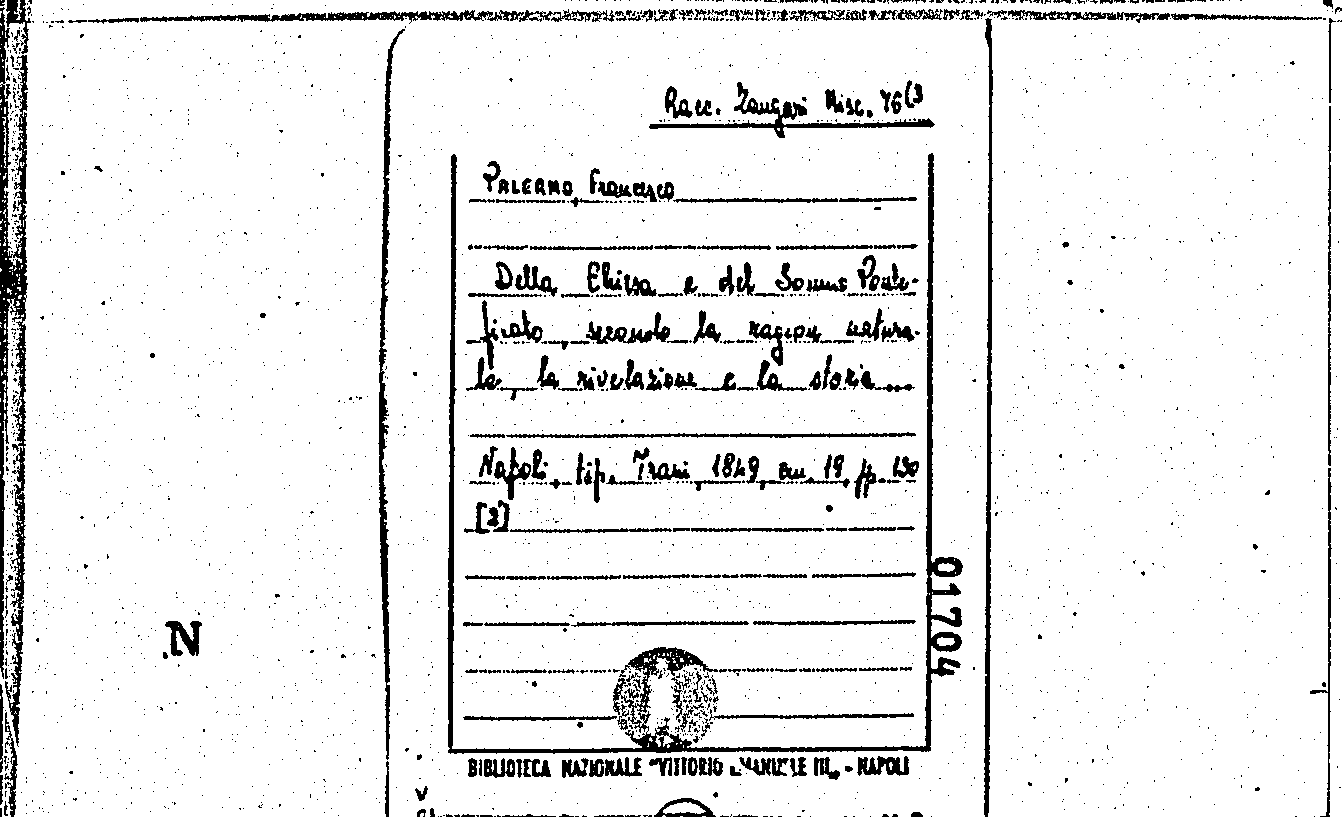 Racc. Zangari Misc. 76(3
PALERMO, Francesco
Della Chiesa e del Sommo Ponte-
ficato, secondo la ragion natura-
le, la rivelazione e la storia...
Napoli, tip. Trani, 1849, cm. 19, pp. 130
[2]
01704
N
BIBLIOTECA NAZIONALE "VITTORIO EMANUELE III„ - NAPOLI